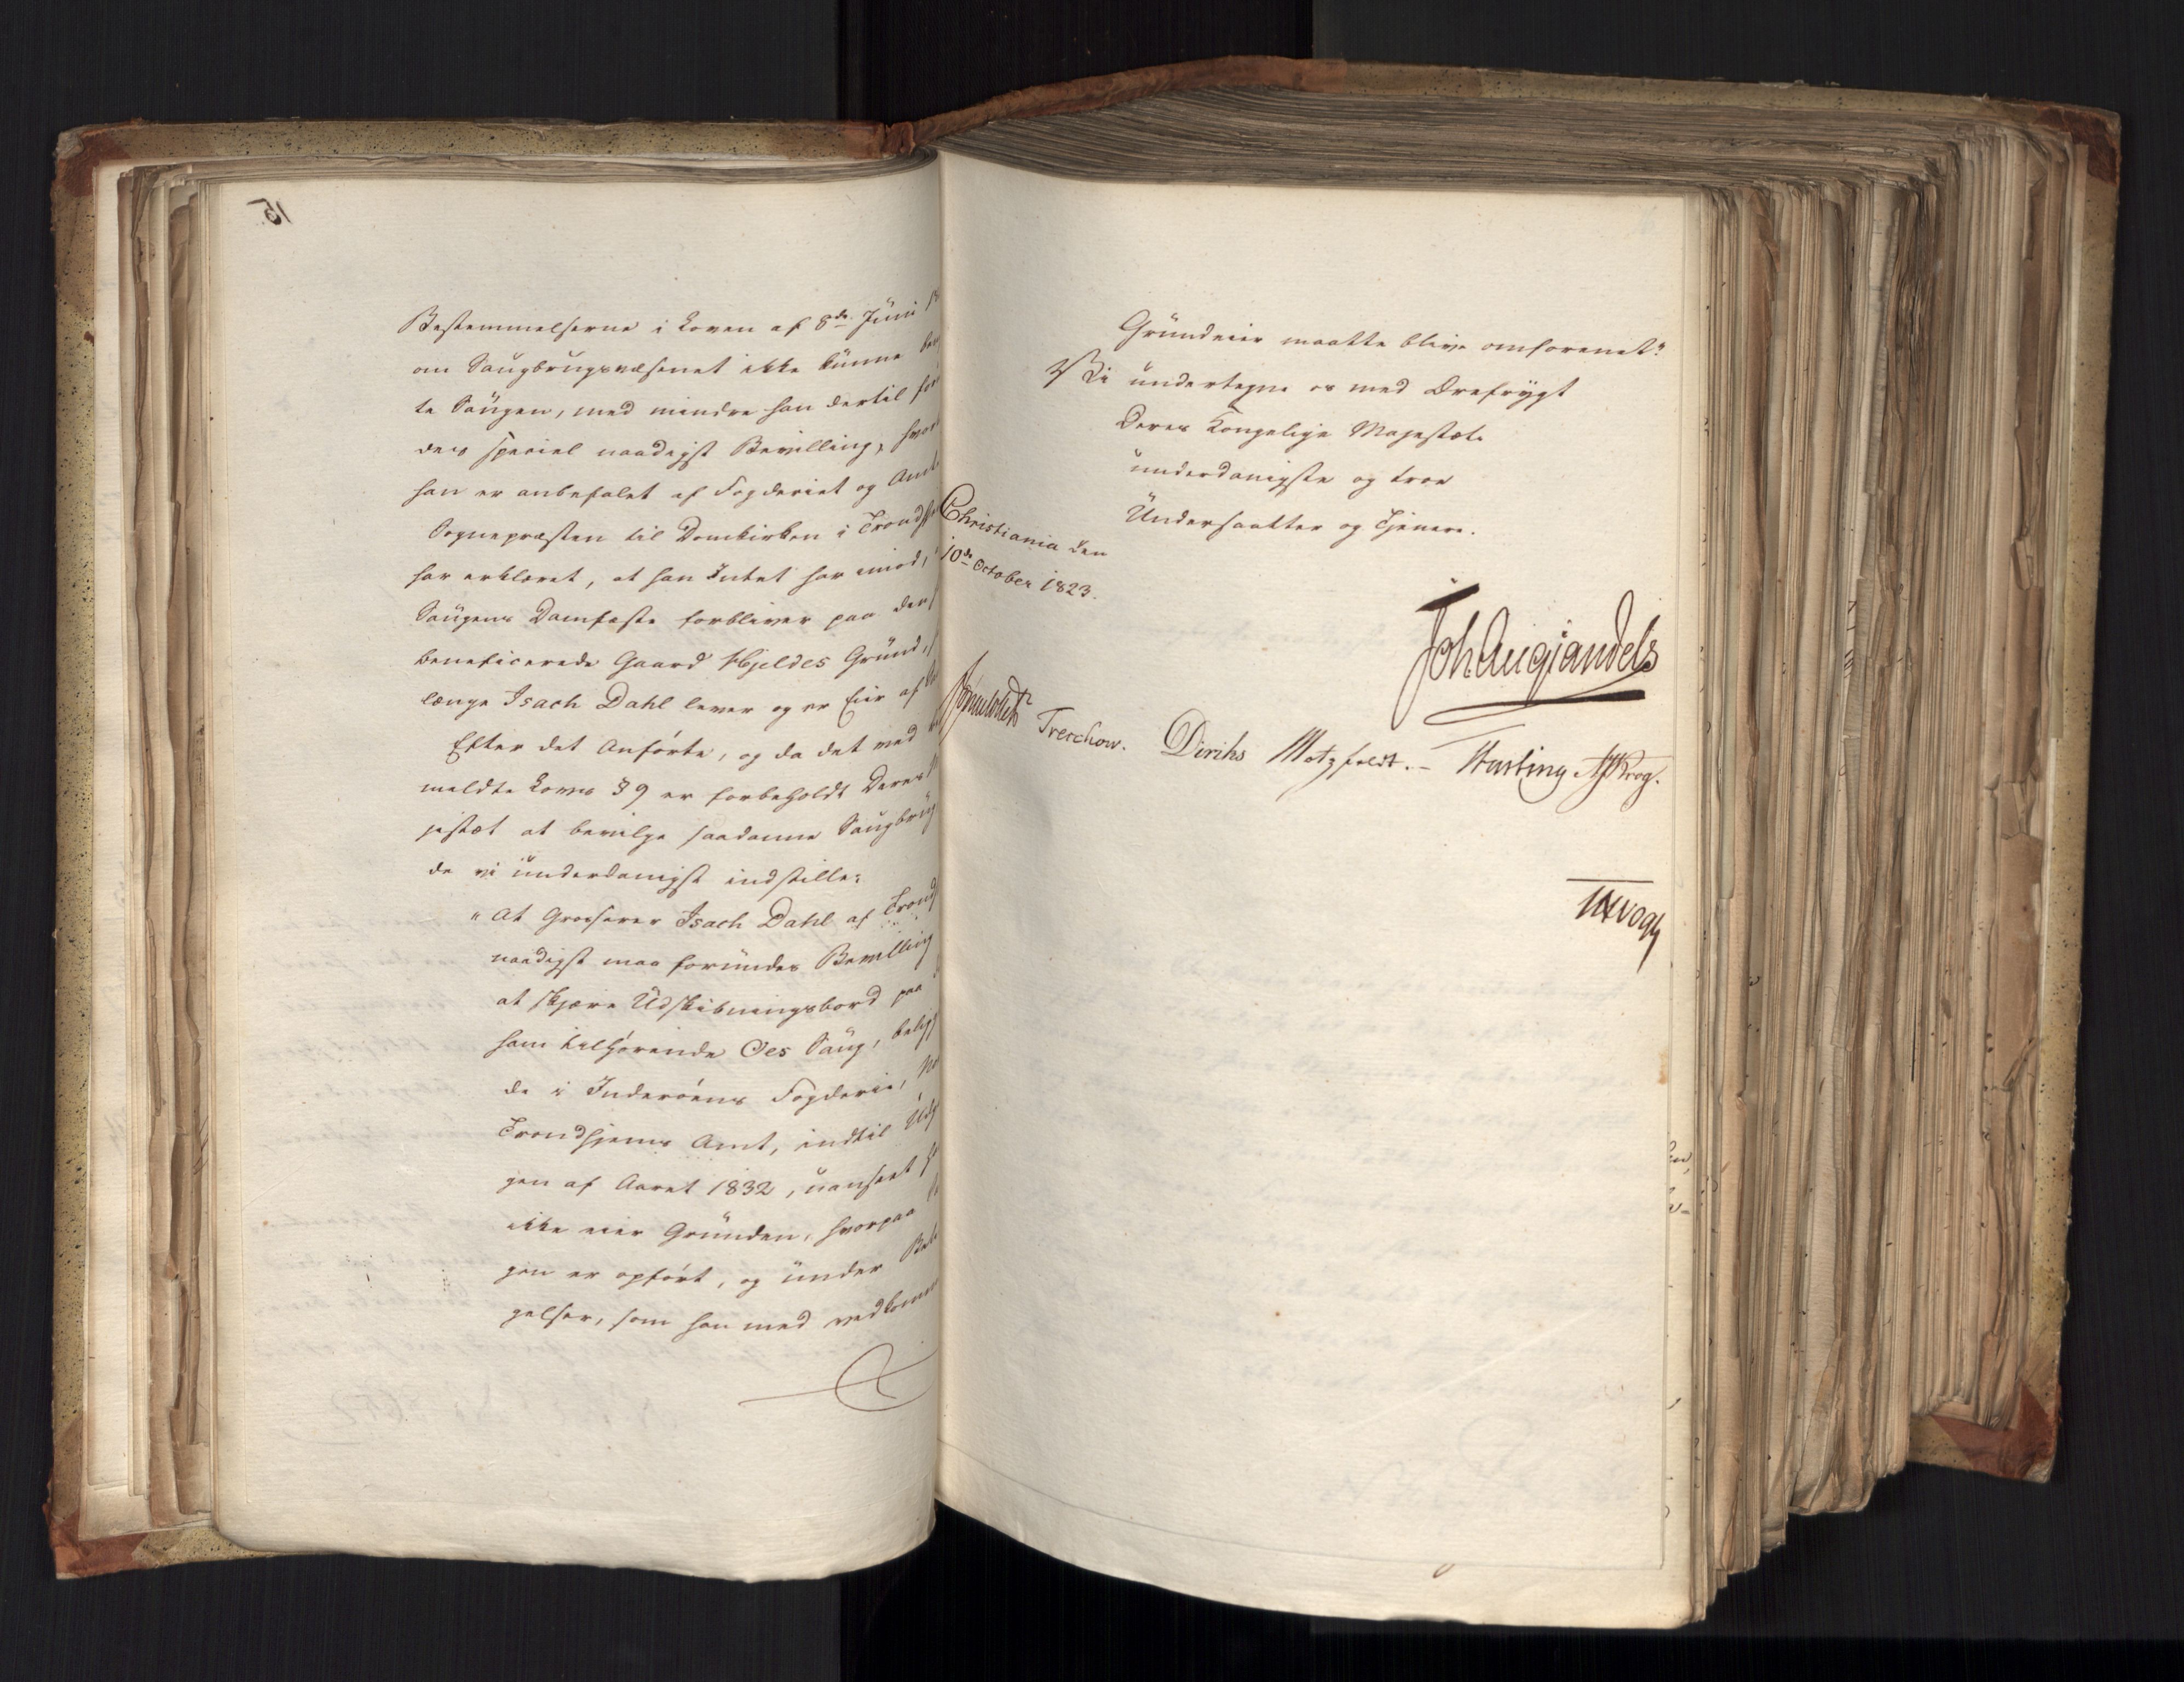 15.
Bestemmelserne i Loven af 8de Juni 18
om Saugbrugsvæsenet ikke kunne ben
te Saugen, med mindre han dertil for
des speciel naadigst Bevilling, hvor
han er anbefalet af Fogderiet og Amt
Sognepræsten til Domkirken i Trondhj
har erklæret, at han Intet har imod,
Saugens Damfæste forbliver paa den
beneficerede Gaard Hjeldes Grund, s
længe Isach Dahl lever og er Eier af
Efter det Anførte, og da det med
meldte Lovs § 9 er forbeholdt Deres
jestæt at bevilge saadanne Saugbrug
de vi underdanigst indstille:
"At Grosserer Isach Dahl af Trond
naadigst maa forundes Bevilling
at skjære Udskibningsbord paa d
ham tilhørende Oes Saug, belig
de i Inderøens Fogderie, No
Trondhjems Amt, indtil Udg
gen af Aaret 1832, uanseet h
ikke eier Grunden, hvorpaa
gen er opført, og under Beti
gelser, som han med vedkomme
Grundeier maatte blive omforenet."
Vi undertegne os med Ærefrygt
Deres Kongelige Majestæts
underdanigste og troe
Undersaatter og Tjenere.
Christiania den
10de October 1823.
Joh Aug Sandels
Sommerhielm Treschow. Diriks Motzfeldt. Fasting Krog.
Vogt